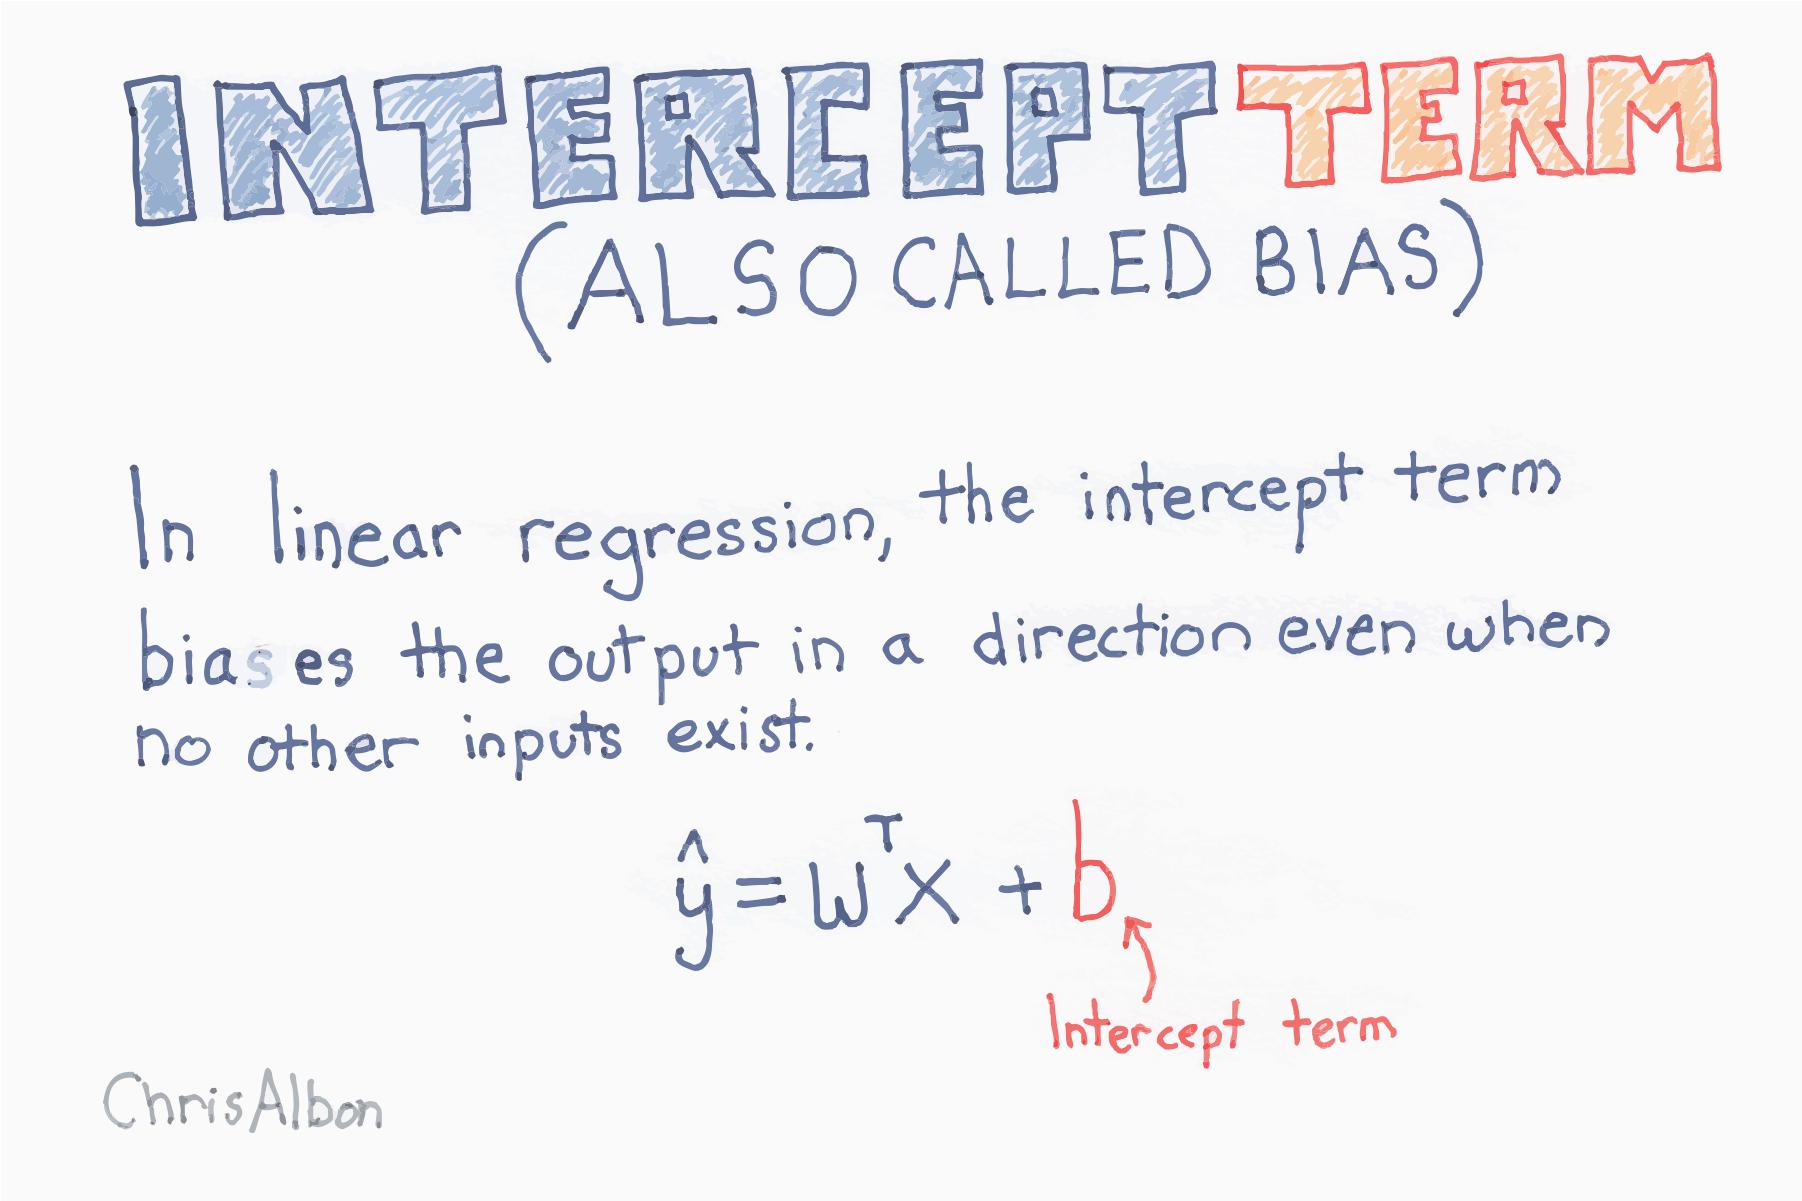 INTERCEPT TERM
(ALSO CALLED BIAS)
In linear regression, the intercept term
biases the output in a direction even when
no other inputs exist.
ŷ = WᵀX + b
Intercept term
ChrisAlbon